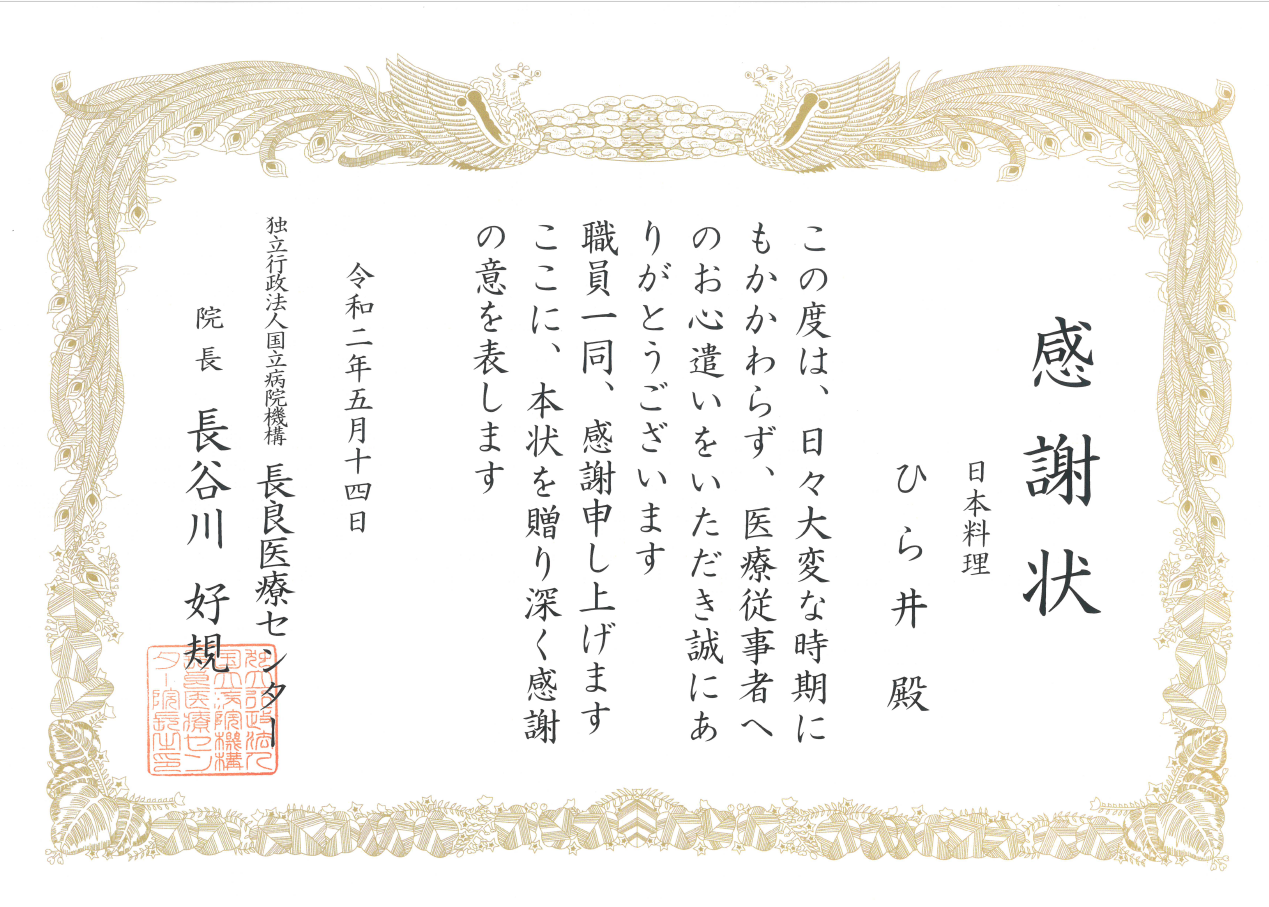 感謝状
日本料理
ひら井 殿
この度は、日々大変な時期に
もかかわらず、医療従事者へ
のお心遣いをいただき誠にあ
りがとうございます
職員一同、感謝申し上げます
ここに、本状を贈り深く感謝
の意を表します
令和二年五月十四日
独立行政法人国立病院機構 長良医療センター
院長 長谷川 好規
独立行政法人
国立病院機構
長良医療セン
ター院長之印